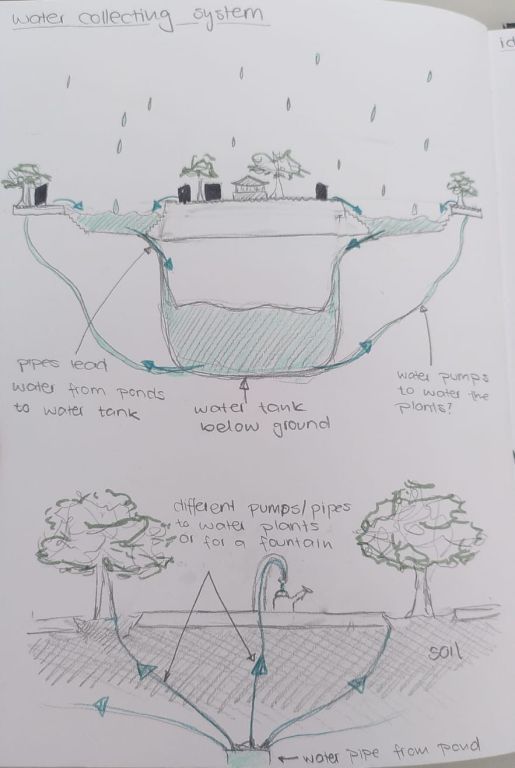 water collecting system
id
pipes lead
water from ponds
to water tank
water tank
below ground
water pumps
to water the
plants?
different pumps/pipes
to water plants
or for a fountain
soil
water pipe from pond